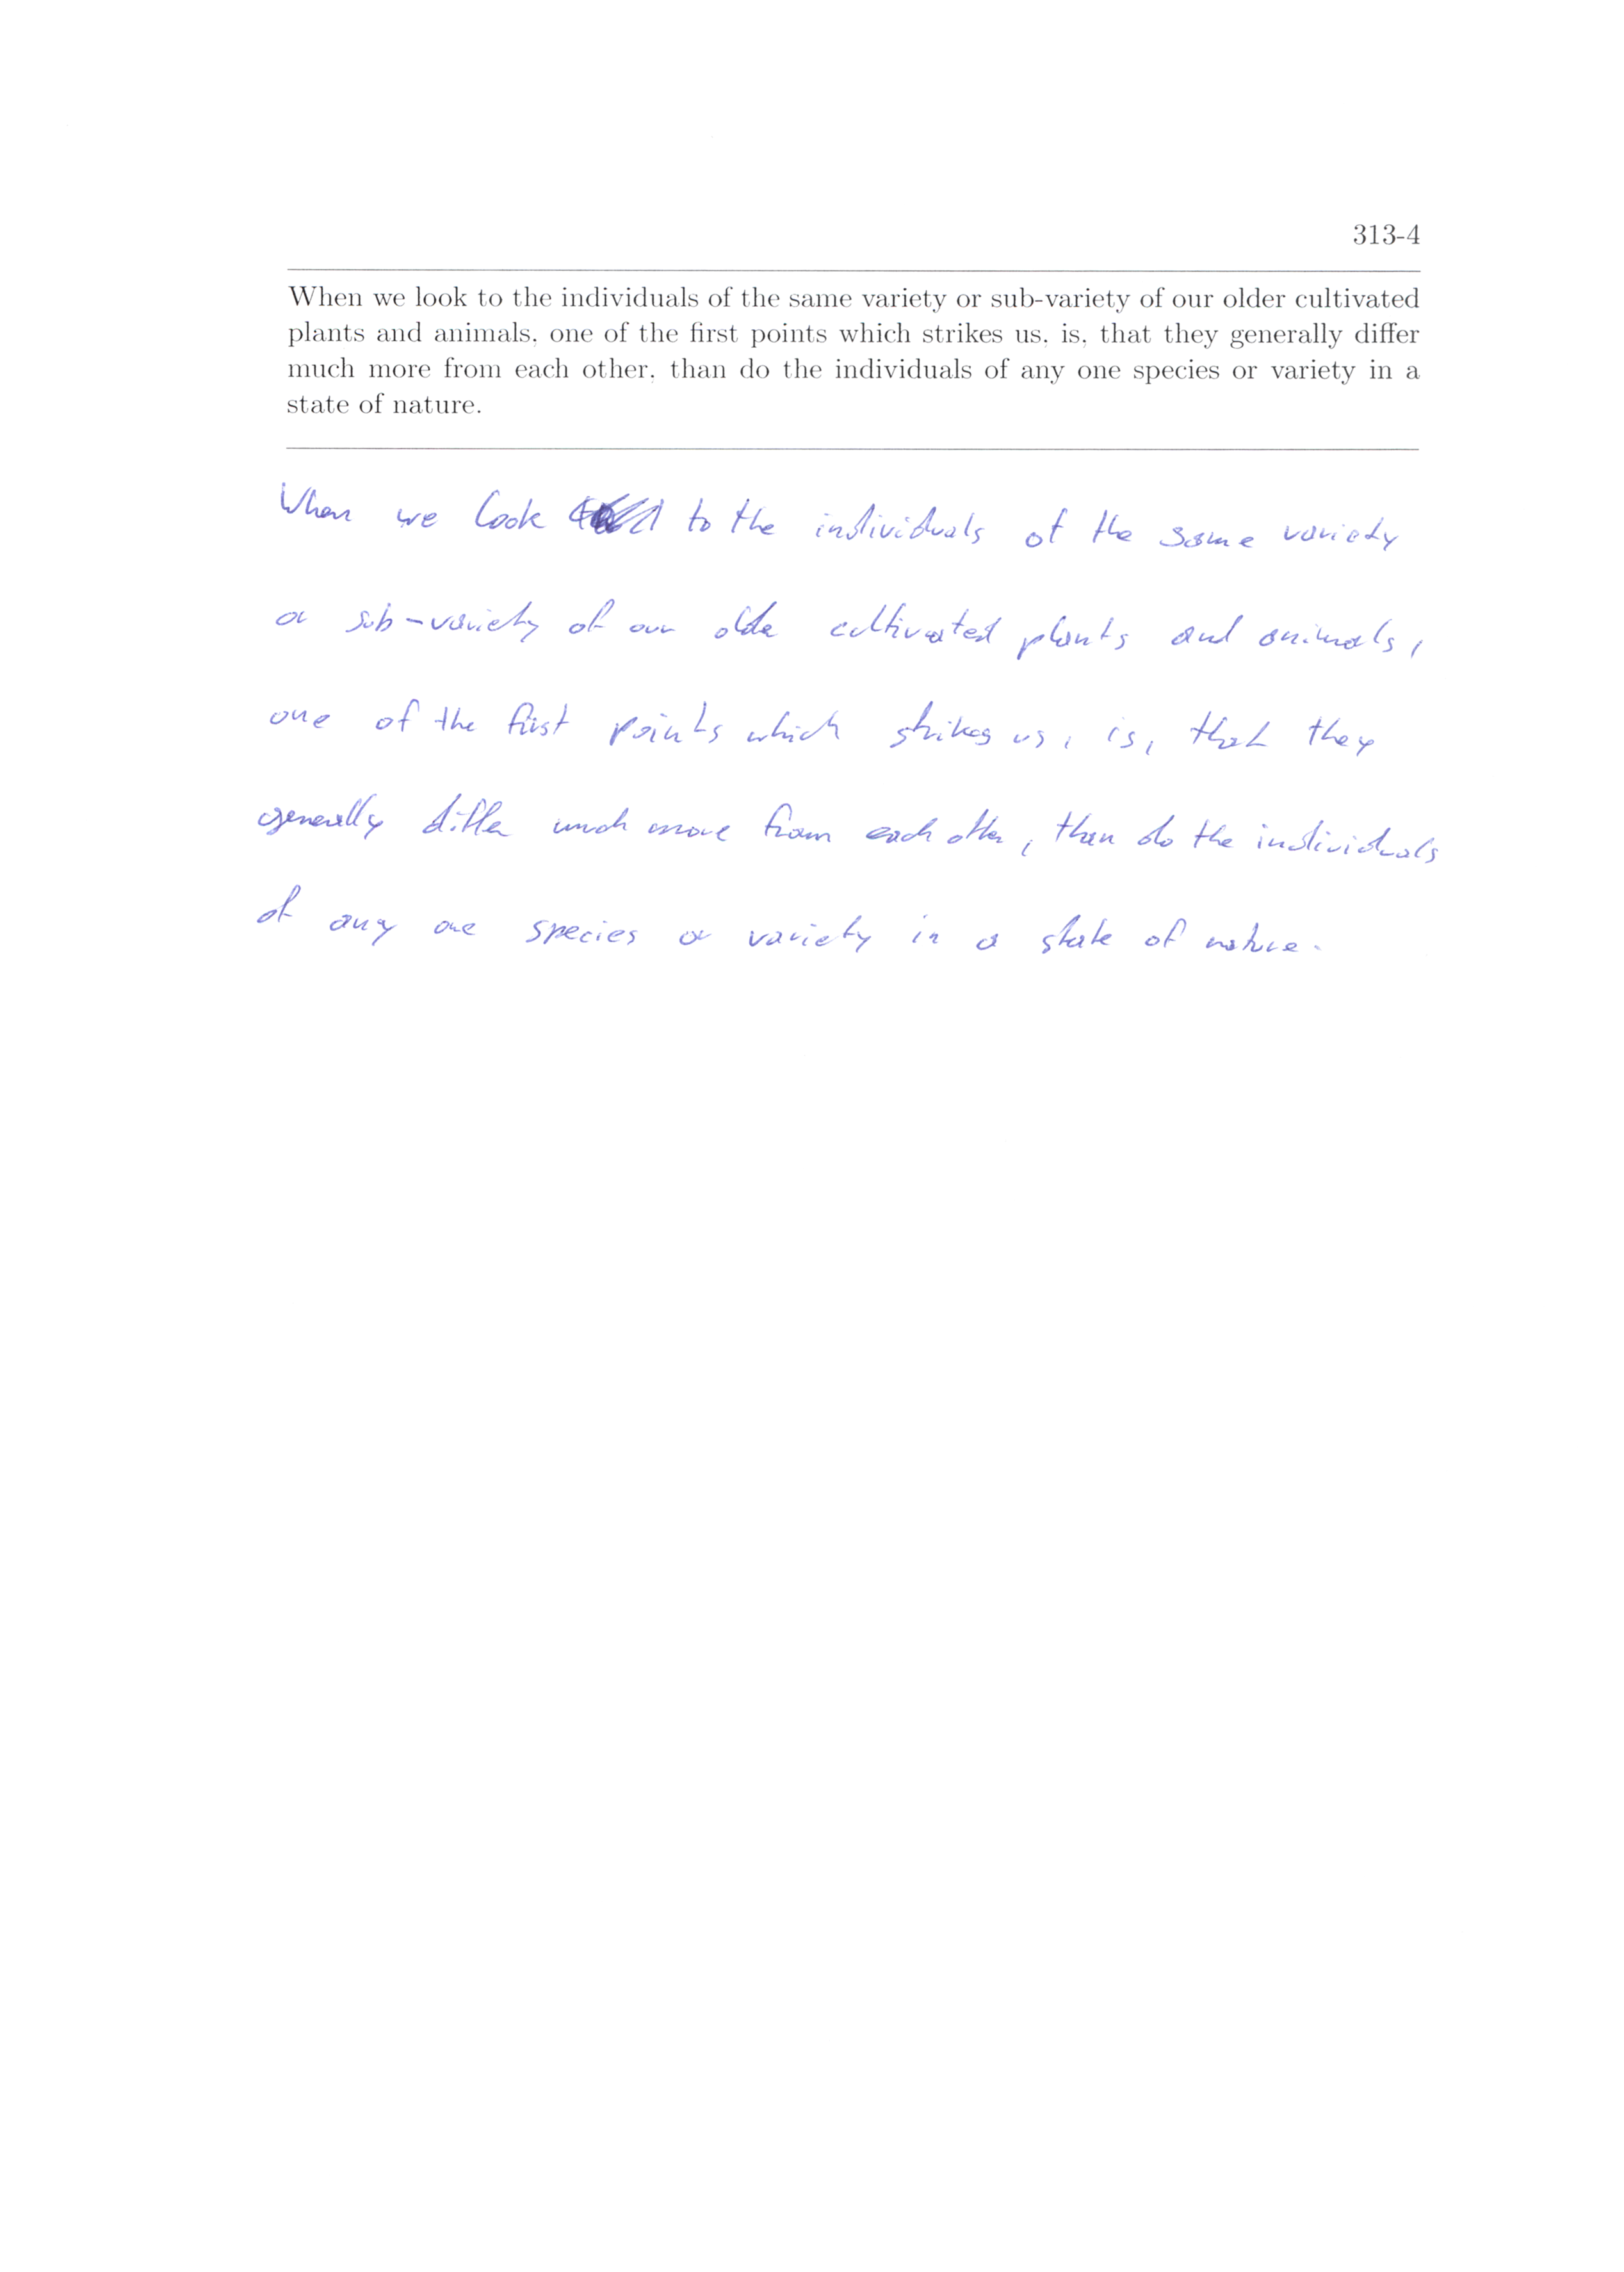 313-4
When we look to the individuals of the same variety or sub-variety of our older cultivated
plants and animals, one of the first points which strikes us, is, that they generally differ
much more from each other, than do the individuals of any one species or variety in a
state of nature.
When we look to the individuals of the same variety
or sub-variety of our older cultivated plants and animals,
one of the first points which strikes us, is, that they
generally differ much more from each other, than do the individuals
of any one species or variety in a state of nature.